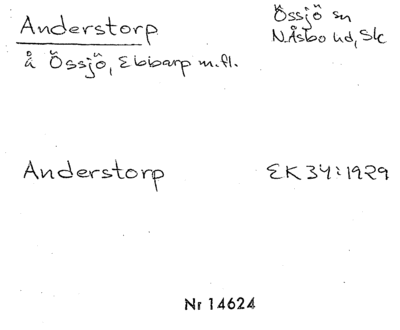 Anderstorp
Össjö sn
N.Åsbo hd, Sk
å Össjö, Ebbarp m.fl.
Anderstorp EK 34:1929
Nr 14624